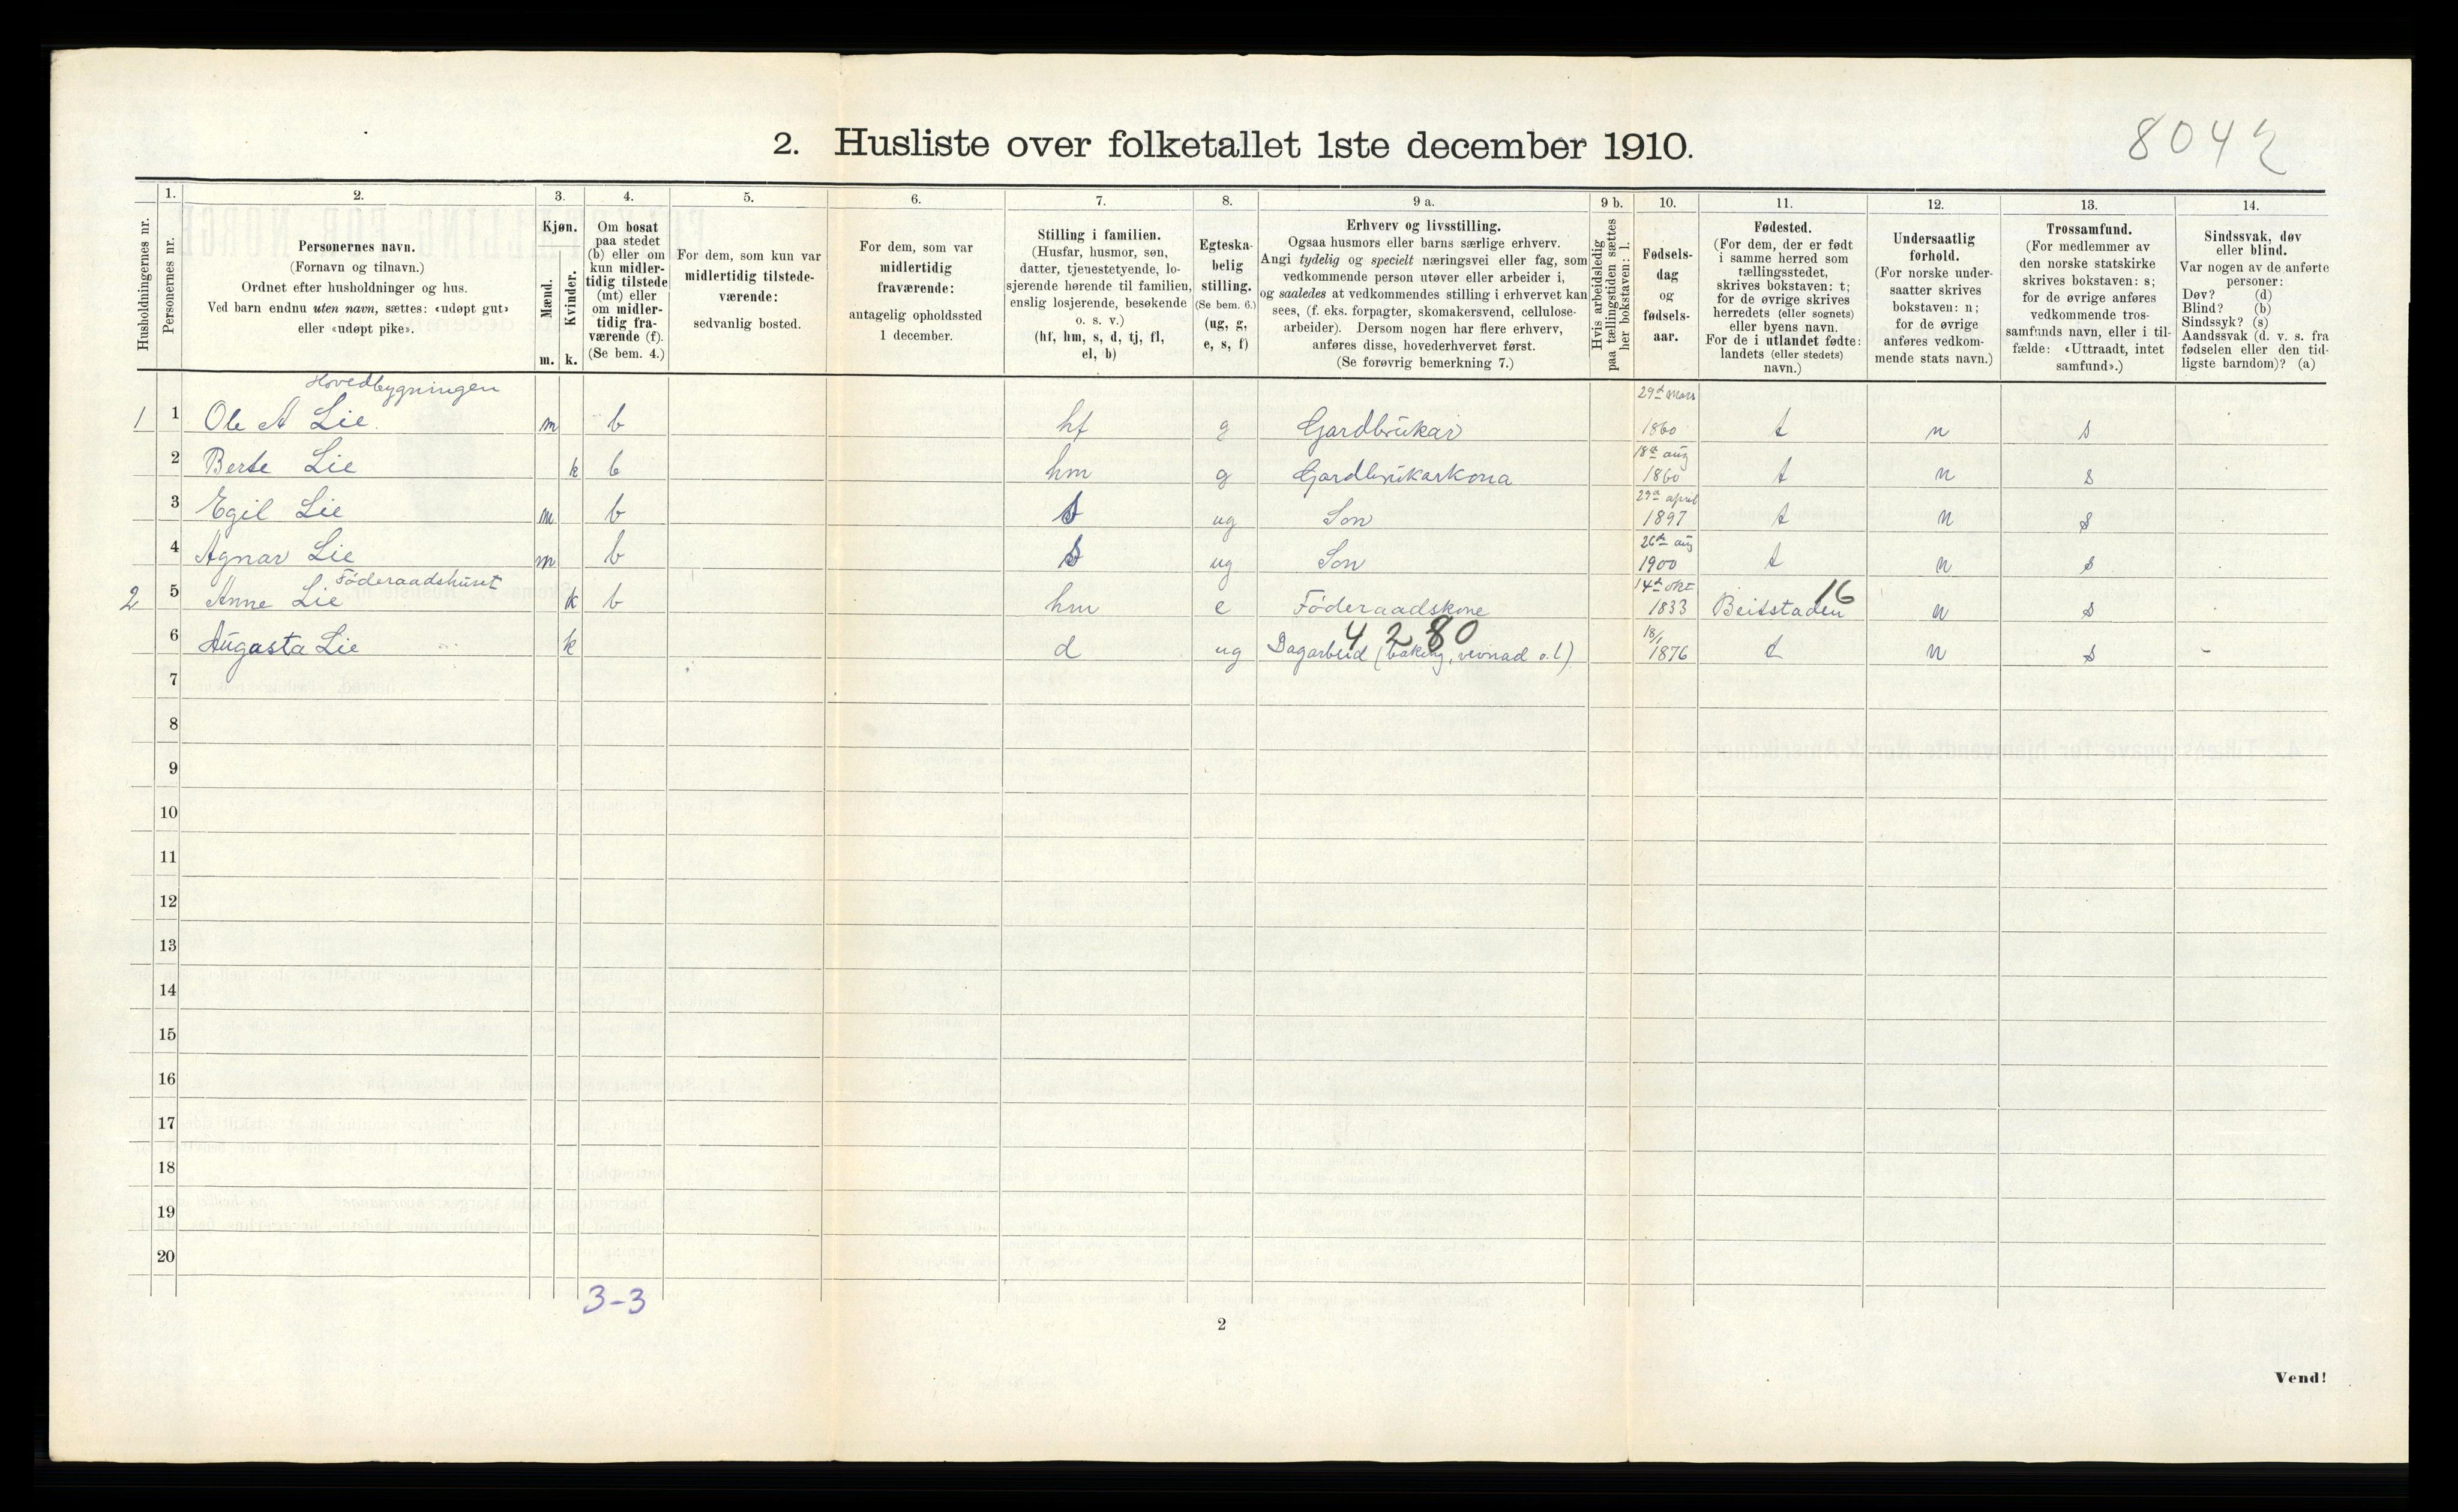 2. Husliste over folketallet 1ste december 1910.
8042
Husholdningernes nr.
1.
Personernes nr.
2.
Personernes navn.
(Fornavn og tilnavn.)
Ordnet efter husholdninger og hus.
Ved barn endnu uten navn, sættes: «udøpt gut»
eller «udøpt pike».
3.
Kjøn.
Mænd.
m.
Kvinder.
k.
4.
Om bosat
paa stedet
(b) eller om
kun midler-
tidig tilstede
(mt) eller
om midler-
tidig fra-
værende (f).
(Se bem. 4.)
5.
For dem, som kun var
midlertidig tilstede-
værende:
sedvanlig bosted.
6.
For dem, som var
midlertidig
fraværende:
antagelig opholdssted
1 december.
7.
Stilling i familien.
(Husfar, husmor, søn,
datter, tjenestetyende, lo-
sjerende hørende til familien,
enslig losjerende, besøkende
o. s. v.)
(hf, hm, s, d, tj, fl,
el, b)
8.
Egteska-
belig
stilling.
(Se bem. 6.)
(ug, g,
e, s, f)
9 a.
Erhverv og livsstilling.
Ogsaa husmors eller barns særlige erhverv.
Angi tydelig og specielt næringsvei eller fag, som
vedkommende person utøver eller arbeider i,
og saaledes at vedkommendes stilling i erhvervet kan
sees, (f. eks. forpagter, skomakersvend, cellulose-
arbeider). Dersom nogen har flere erhverv,
anføres disse, hovederhvervet først.
(Se forøvrig bemerkning 7.)
9 b.
Hvis arbeidsledig
paa tællingstiden sættes
her bokstaven: l.
10.
Fødsels-
dag
og
fødsels-
aar.
11.
Fødested.
(For dem, der er født
i samme herred som
tællingsstedet,
skrives bokstaven: t;
for de øvrige skrives
herredets (eller sognets)
eller byens navn.
For de i utlandet fødte:
landets (eller stedets)
navn.)
12.
Undersaatlig
forhold.
(For norske under-
saatter skrives
bokstaven: n;
for de øvrige
anføres vedkom-
mende stats navn.)
13.
Trossamfund.
(For medlemmer av
den norske statskirke
skrives bokstaven: s;
for de øvrige anføres
vedkommende tros-
samfunds navn, eller i til-
fælde: «Uttraadt, intet
samfund».)
14.
Sindssvak, døv
eller blind.
Var nogen av de anførte
personer:
Døv? (d)
Blind? (b)
Sindssyk? (s)
Aandssvak (d. v. s. fra
fødselen eller den tid-
ligste barndom)? (a)
Hovedbygningen
1 1 Ole A Lie m b hf g Gardbrukar 29de mars 1860 t n s
2 Berte Lie k b hm g Gardbrukarkona 18de aug 1860 t n s
3 Egil Lie m b s ug Son 29de april 1897 t n s
4 Agnar Lie m b s ug Son 26de aug 1900 t n s
Föderaadshuset
2 5 Anne Lie k b hm e Föderaadskone 14de okt 1833 Beitstaden 16 n s
6 Augasta Lie k d ug Dagarbeid (baking, vevnad o.l.) 4280 18/1 1876 t n s -
7
8
9
10
11
12
13
14
15
16
17
18
19
20
3-3
2
Vend!